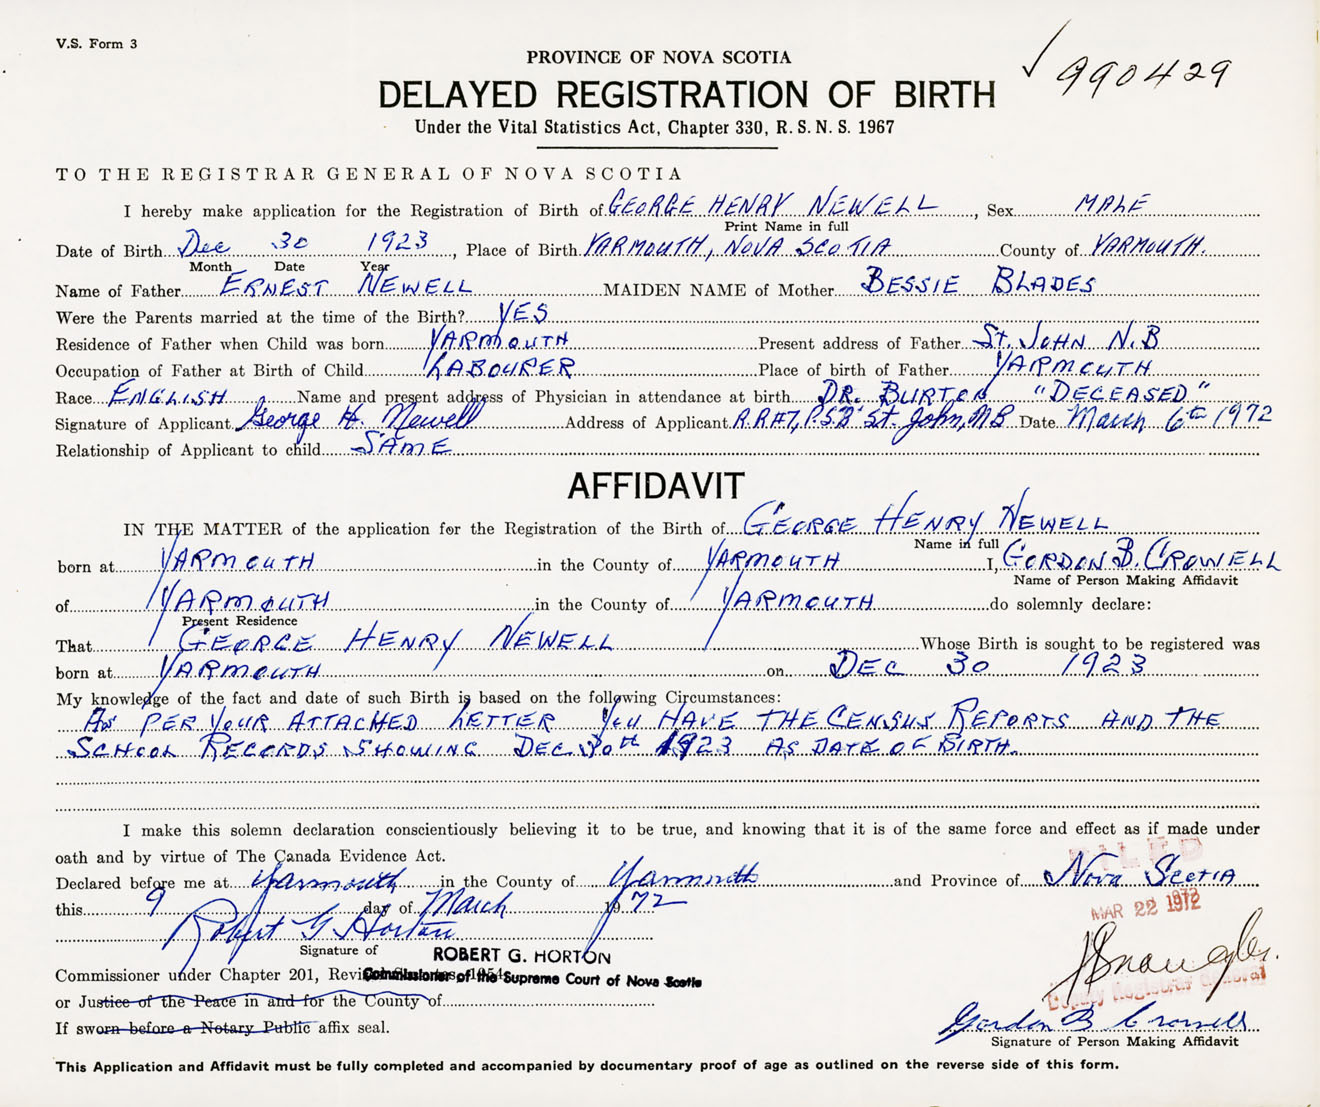 V.S. Form 3
PROVINCE OF NOVA SCOTIA
990429
DELAYED REGISTRATION OF BIRTH
Under the Vital Statistics Act, Chapter 330, R. S. N. S. 1967
TO THE REGISTRAR GENERAL OF NOVA SCOTIA
I hereby make application for the Registration of Birth of GEORGE HENRY NEWELL, Sex MALE
Print Name in full
Date of Birth Dec 30 1923, Place of Birth YARMOUTH, NOVA SCOTIA County of YARMOUTH.
Month Date Year
Name of Father ERNEST NEWELL MAIDEN NAME of Mother BESSIE BLADES
Were the Parents married at the time of the Birth? YES
Residence of Father when Child was born YARMOUTH Present address of Father St. JOHN N.B
Occupation of Father at Birth of Child LABOURER Place of birth of Father YARMOUTH
Race ENGLISH Name and present address of Physician in attendance at birth DR. BURTON "DECEASED"
Signature of Applicant George H. Newell Address of Applicant R.R#7, P.S.B St. John, NB Date March 6th 1972
Relationship of Applicant to child SAME
AFFIDAVIT
IN THE MATTER of the application for the Registration of the Birth of GEORGE HENRY NEWELL
Name in full
born at YARMOUTH in the County of YARMOUTH I, GORDON B. CROWELL
Name of Person Making Affidavit
of YARMOUTH in the County of YARMOUTH do solemnly declare:
Present Residence
That GEORGE HENRY NEWELL Whose Birth is sought to be registered was
born at YARMOUTH on DEC 30 1923
My knowledge of the fact and date of such Birth is based on the following Circumstances:
AS PER YOUR ATTACHED LETTER YOU HAVE THE CENSUS REPORTS AND THE
SCHOOL RECORDS SHOWING DEC 30th 1923 AS DATE OF BIRTH.
I make this solemn declaration conscientiously believing it to be true, and knowing that it is of the same force and effect as if made under
oath and by virtue of The Canada Evidence Act.
FILED
Declared before me at Yarmouth in the County of Yarmouth and Province of NOVA SCOTIA
this 9 day of March 1972
MAR 22 1972
Robert G. Horton
Signature of ROBERT G. HORTON
Commissioner under Chapter 201, Commissioner of the Supreme Court of Nova Scotia
Deputy Registrar General
or Justice of the Peace in and for the County of
If sworn before a Notary Public affix seal.
Gordon B Crowell
Signature of Person Making Affidavit
This Application and Affidavit must be fully completed and accompanied by documentary proof of age as outlined on the reverse side of this form.